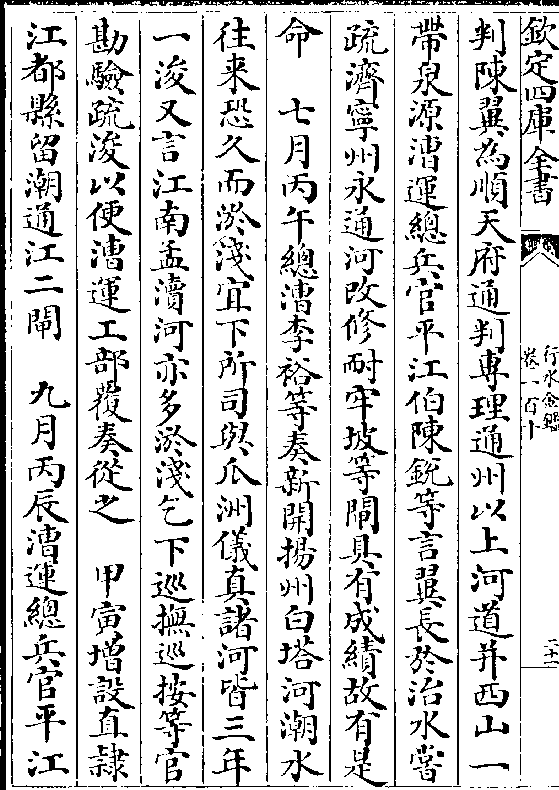 欽定四庫全書
行水金鑑
卷一百十
判陳翼為順天府通判專理通州以上河道并西山一
帶泉源漕運總兵官平江伯陳銳等言翼長於治水嘗
疏濟寧州永通河改修耐牢坡等閘具有成績故有是
命　七月丙午總漕李裕等奏新開揚州白塔河潮水
往来恐久而淤淺宜下所司與瓜洲儀真諸河皆三年
一浚又言江南孟瀆河亦多淤淺乞下巡撫巡按等官
勘驗疏浚以便漕運工部覆奏從之　甲寅增設直隷
江都縣留潮通江二閘　九月丙辰漕運總兵官平江